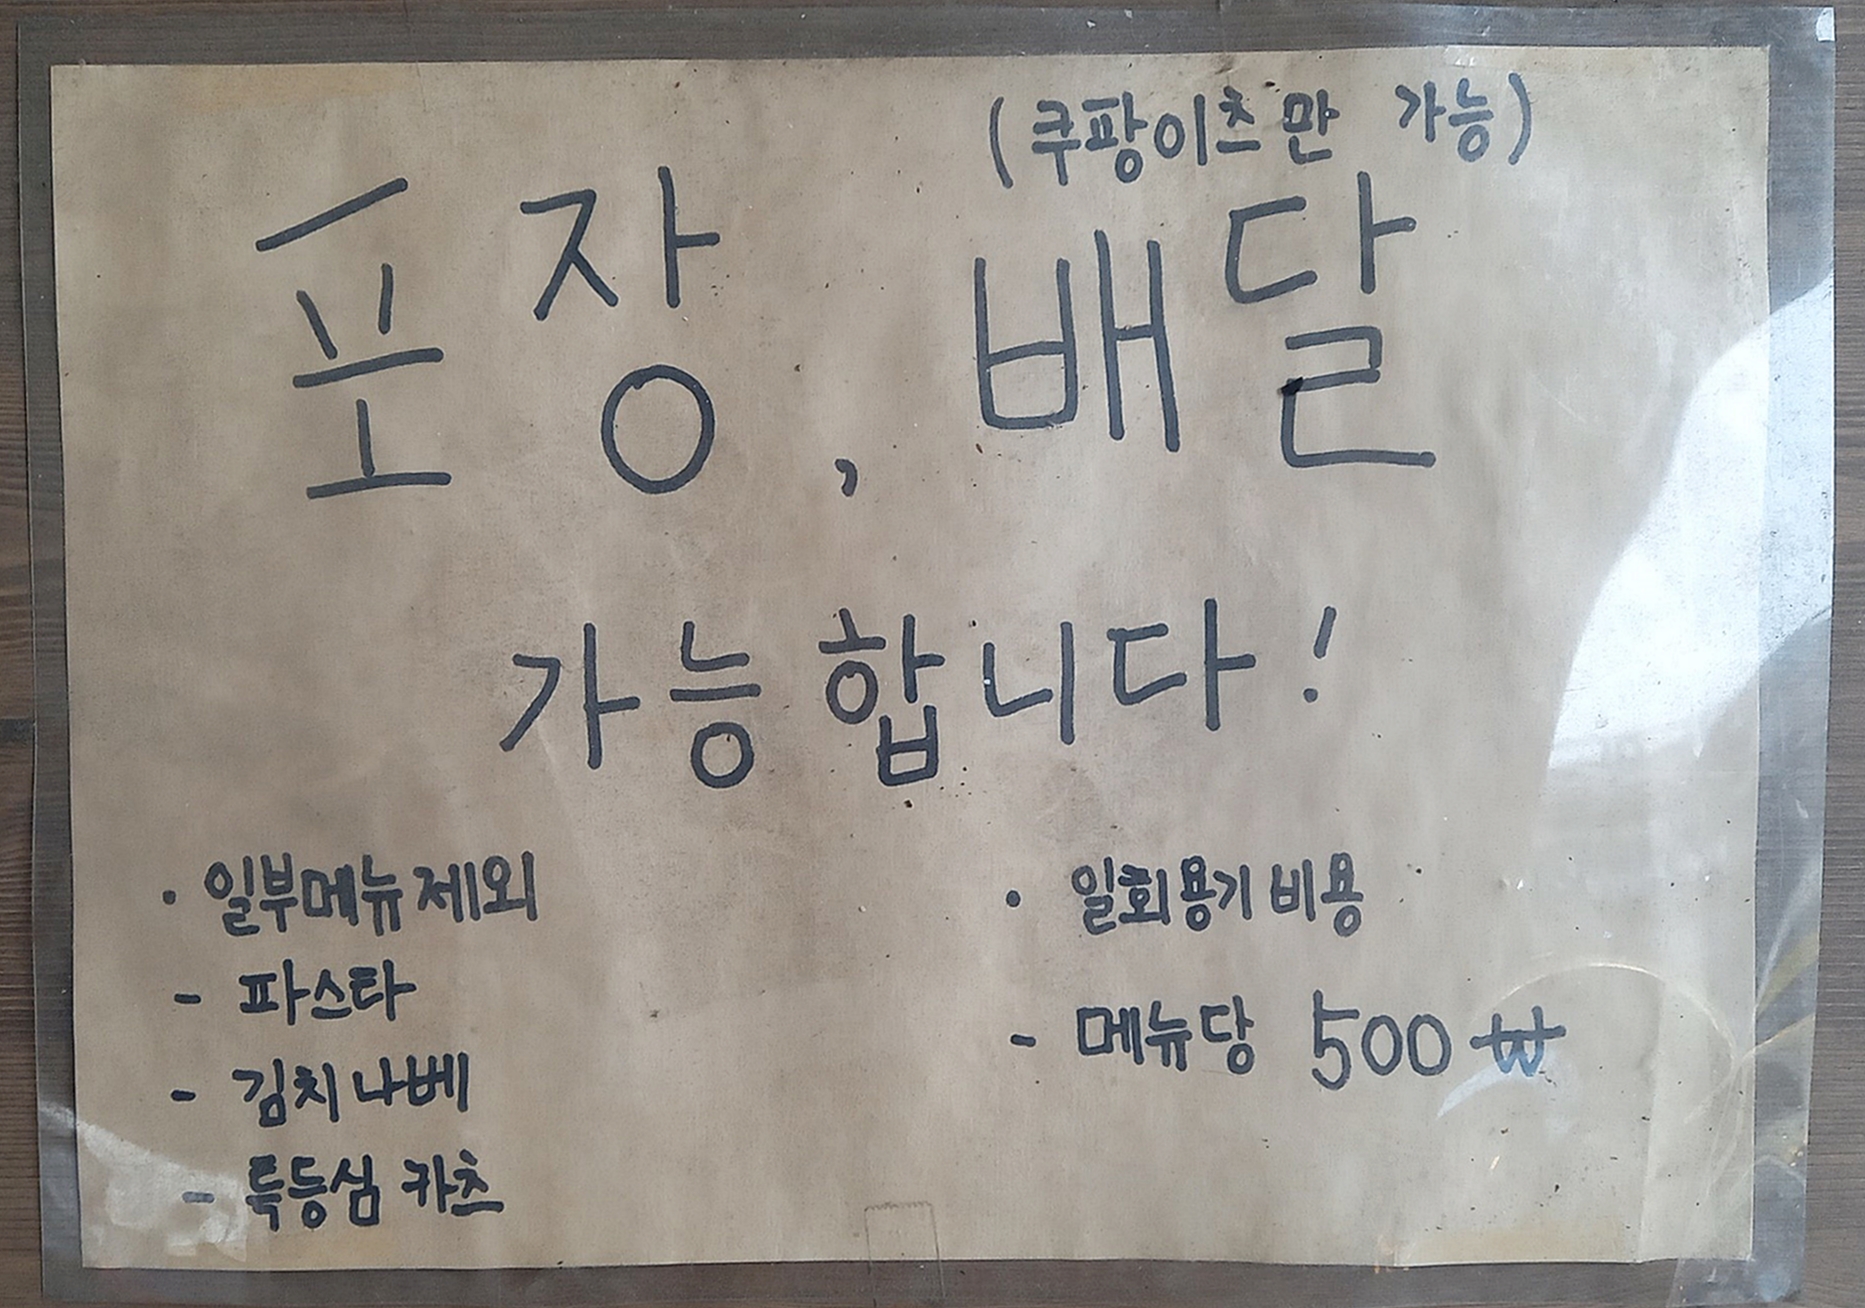 (쿠팡이츠만 가능)
포장, 배달
가능합니다!
· 일부메뉴 제외
- 파스타
- 김치나베
- 특등심 카츠
· 일회용기 비용
- 메뉴당 500 ₩